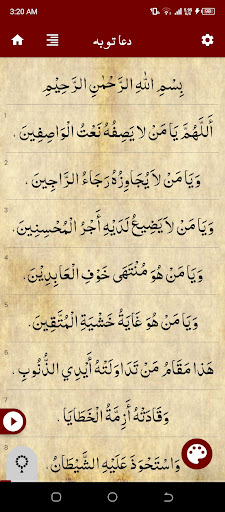 3:20 AM
دعا توبه
بِسْمِ اللهِ الرَّحْمٰنِ الرَّحِيْمِ
1
أَللّٰهُمَّ يَا مَنْ لَا يَصِفُهُ نَعْتُ الْوَاصِفِينَ .
2
وَيَا مَنْ لَا يُجَاوِزُهُ رَجَاءُ الرَّاجِينَ .
3
وَيَا مَنْ لَا يَضِيعُ لَدَيْهِ أَجْرُ الْمُحْسِنِينَ .
4
وَيَا مَنْ هُوَ مُنْتَهَى خَوْفِ الْعَابِدِيْنَ .
5
وَيَا مَنْ هُوَ غَايَةُ خَشْيَةِ الْمُتَّقِينَ .
6
هَذَا مَقَامُ مَنْ تَدَاوَلَتْهُ أَيْدِي الذُّنُوبِ .
وَقَادَتْهُ أَزِمَّةُ الْخَطَايَا .
8
وَاسْتَحْوَذَ عَلَيْهِ الشَّيْطَانُ .